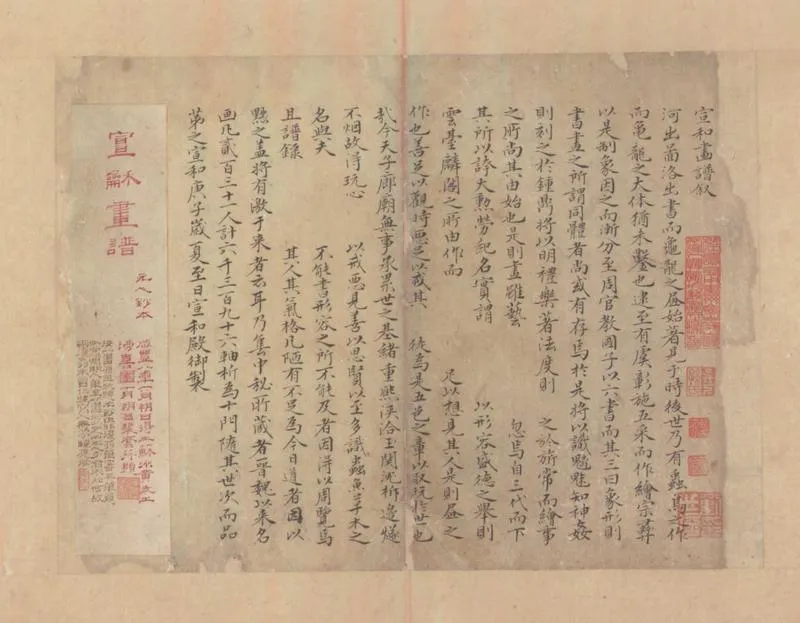 宣和畫譜叙
河出啚洛出書而龜龍之畫始著見于時後世乃有蟲鳥之作
而龟龍之大体猶未鑿也逮至有虞彰施五采而作繪宗彝
以是制象因之而漸分至周官教國子以六書而其三曰象形則
書畫之所謂同體者尚或有存焉於是将以識魑魅知神姦
則刻之於鍾鼎将以明禮樂著法度則 之於旂常而繪事
之所尚其由始也是則畫雖藝 忽焉自三代而下
其所以誇大勲勞紀名實謂 以形容盛德之舉則
雲臺麟閣之所由作而 足以想見其人是則畫之
作也善足以觀時惡足以戒其 後焉是五色之章以取玩於世也
哉今天子廊廟無事承累世之基緒重熙浹洽玉関沈柝邊燧
不烟故得玩心 以戒惡見善以思賢以至多識蟲魚草木之
名與夫 不能書形容之所不能及者因得以周覽焉
且譜錄 其人其氣格凡陋有不足為今日道者因以
黜之盖将有激于来者云耳乃集中秘所藏者晋魏以来名
画凡貳百三十一人計六千三百九十六軸析為十門隨其世次而品
第之宣和庚子歲夏至日宣和殿御製
宣龢畫譜
元人鈔本